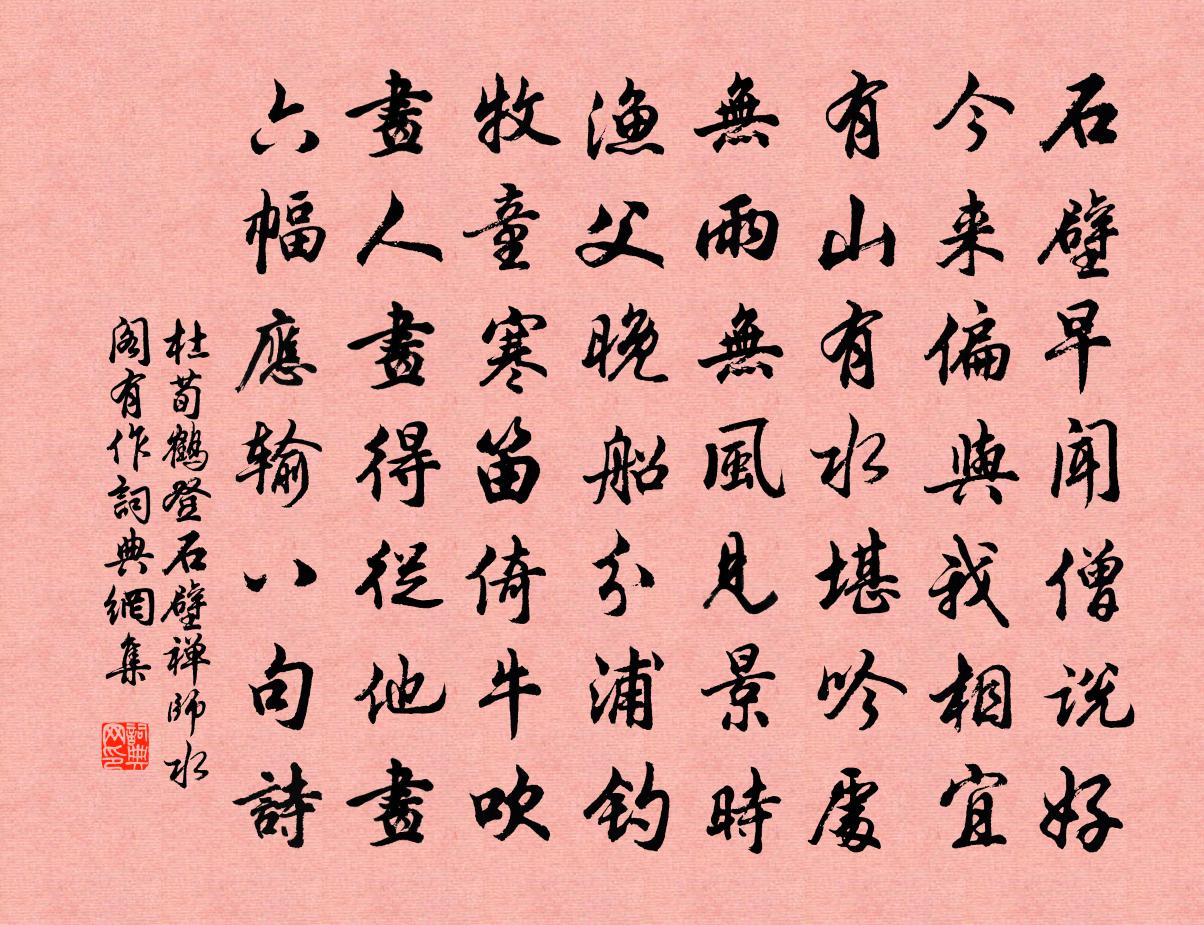 石壁早聞僧説好
今来偏與我相宜
有山有水堪吟處
無雨無風見景時
漁父晚船分浦钓
牧童寒笛倚牛吹
畫人畫得從他畫
六幅應输八句詩
杜荀鶴登石壁禅師水
阁有作詞典網集
詞典网印